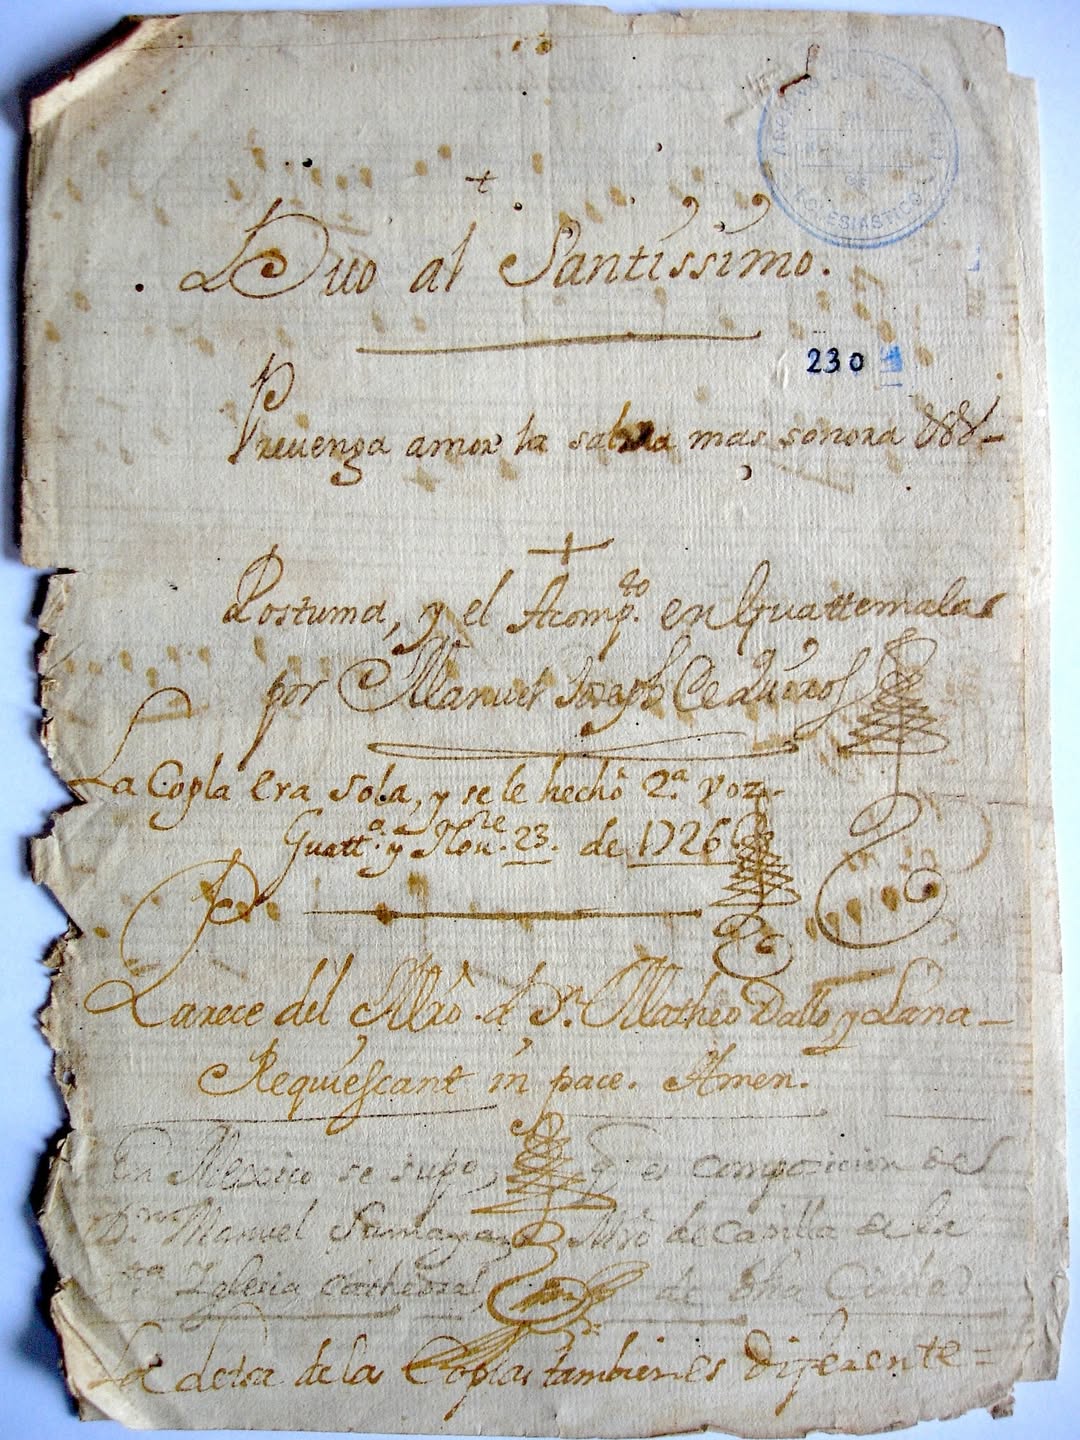 Duo al Santissimo.
230
Preuenga amor la salua mas sonora &&&
Postuma, y el Acomp.to en Guattemala
por Manuel Joseph de Quiros
La Copla era sola, y se le hechó 2.a voz.
Guatt.a y Nou.re 23. de 1726
Parece del Mro. d. Dn. Matheo Dallo y Lana
Requiescant in pace. Amen.
En Mexico se supo, q es composicion del
Dn. Manuel Sumaya Mro de Capilla de la
Sta Iglesia Cathedral de dha Ciudad
La letra de la Coplas tambien es diferente
ECLESIASTICO